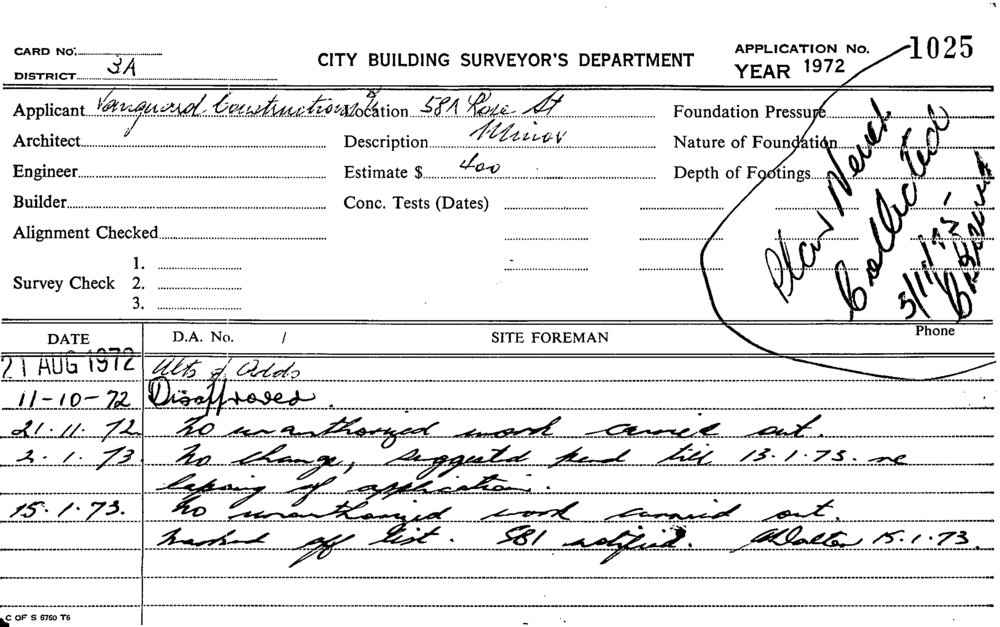 CARD No.
DISTRICT 3A
CITY BUILDING SURVEYOR'S DEPARTMENT
APPLICATION No. 1025
YEAR 1972
Applicant Vanguard Constructions Location 58A Rose St Foundation Pressure
Architect Description Minor Nature of Foundation
Engineer Estimate $ 400 Depth of Footings
Builder Conc. Tests (Dates)
Alignment Checked
Survey Check
1.
2.
3.
Plans Never
Collected
Phone
DATE D.A. No. / SITE FOREMAN
21 AUG 1972 Alts & Adds
11-10-72 Disapproved.
21.11.72 No unauthorized work carried out.
2.1.73. No change, suggested pend till 13.1.73. re
lapsing of application.
15.1.73. No unauthorized work carried out.
Marked off list. SBI notified. 15.1.73.
C OF S 6760 T6